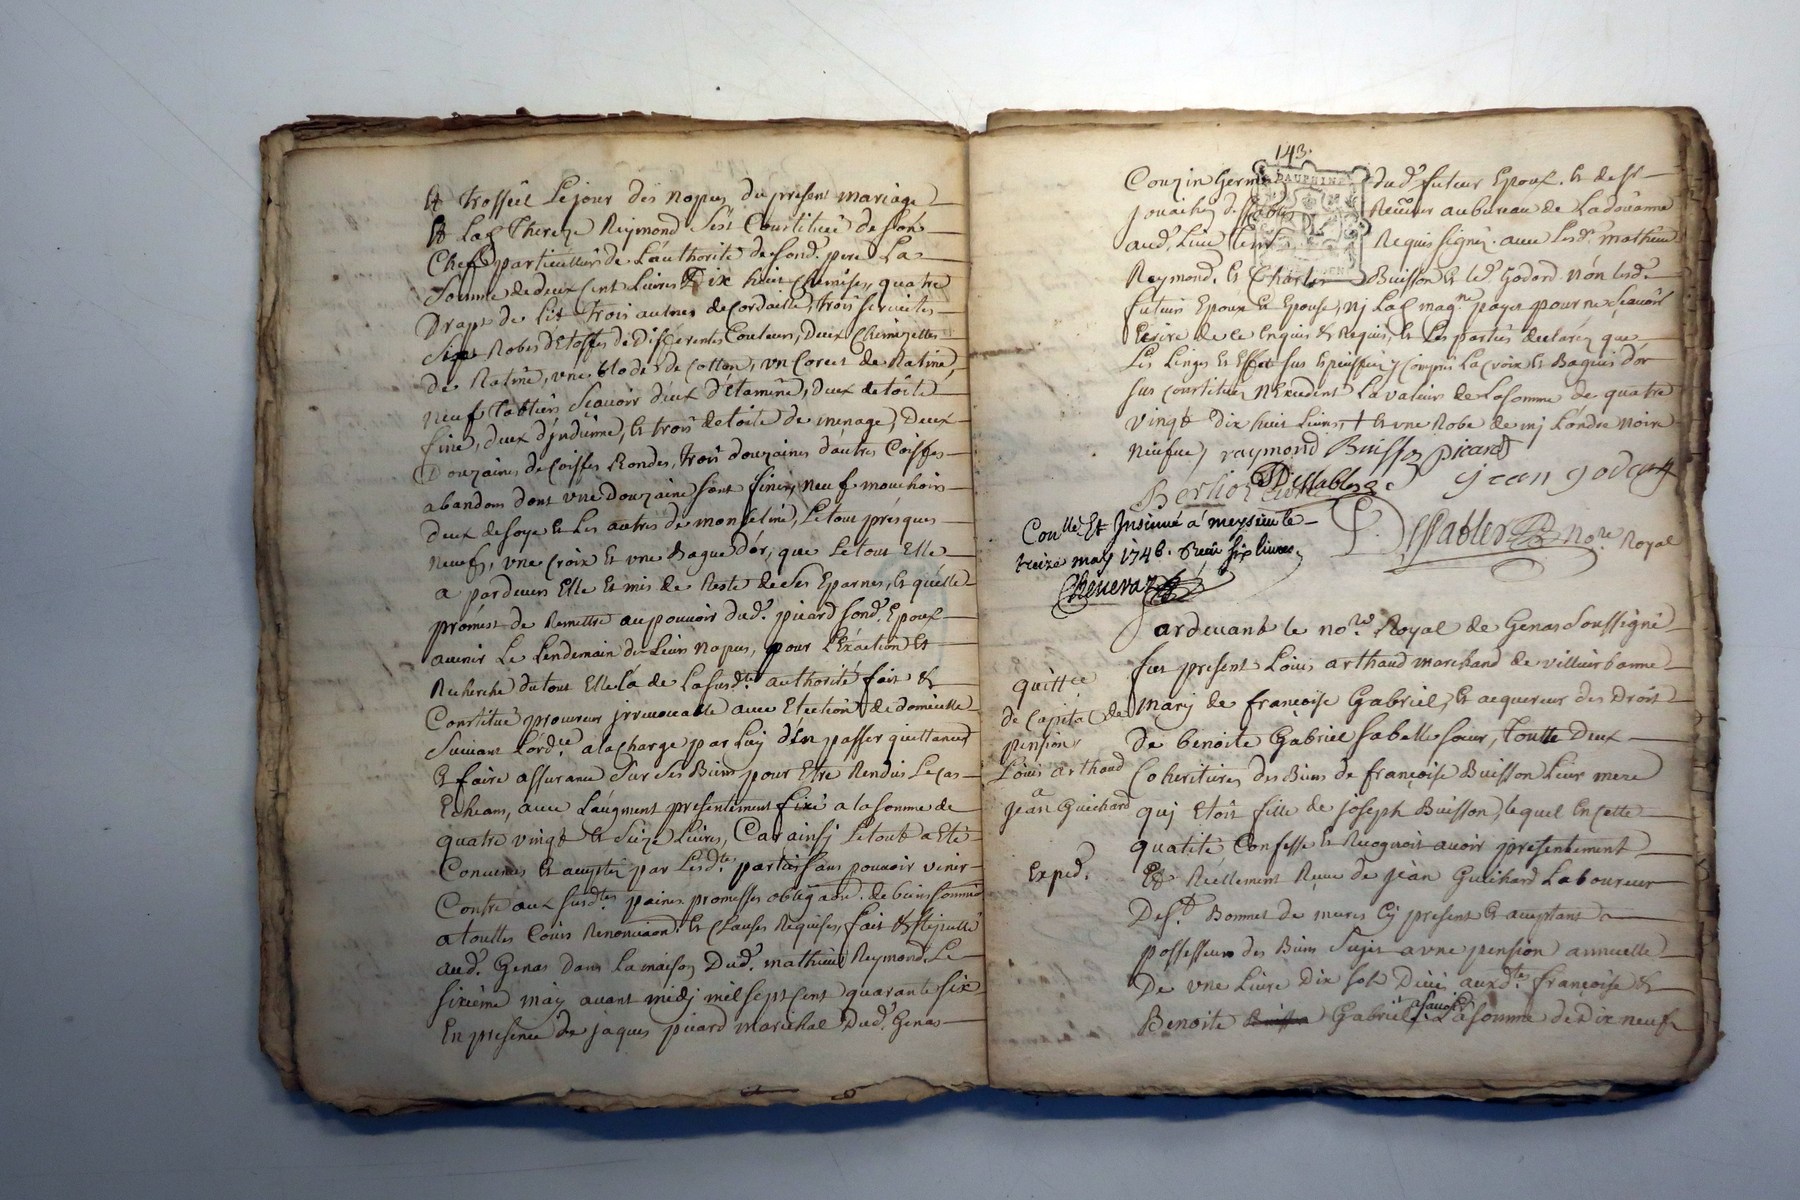 Et trosseül Le jour des nopces du present mariage
Et Lad Thereze Reymond s'est Constituée de son
Chef particullier de L'authorité de sond. pere La
somme de deux cent Livres Dix huit Chemises, quatre
Draps de lit trois autres de Cordaille, trois serviettes
six Robes d'Etoffes de Differentes Couleurs, Deux Chemizettes
de Ratine, une de Cotton, un Corcet de Ratine,
neuf Tabliers sçavoir deux d'Etamine, Deux de toile
fine, deux d'jndienne, et trois de toile de menage, Deux
Douzaines de Coiffes Rondes, trois douzaines d'autres Coiffes
abandons dont une Douzaine sont fines, neuf mouchoirs
deux de soye et les autres de mousseline, Le tout presques
neufs, une Croix et une Bague d'or, que Le tout Elle
a pardevers Elle et mis de Reste de ses Eparnes, et qu'elle
promest de Remettre au pouvoir dud. picard sond. Epoux
avenir Le Lendemain de Leurs nopces, pour L'Exaction Et
Recherche du tout Elle L'a de La susd.te authorité fait &
Constitué procureur jrrevocable avec Election de domicille
suivant L'ord.ce a la Charge par Luy d'En passer quittances
et faire assurance sur ses Biens pour Etre Rendus Le Cas
Echeant, avec L'augment presentement fixé a la somme de
quatre vingt et seize Livres, Car ainsj Le tout a Eté
Convenus Et accepté par Lesd.tes parties sans pouvoir venir
Contre aux susd.tes paines promesses oblig.aon. de biens soumis
a touttes Cours Renonciaon. et Clauses Requises, fait & stipullé
aud. Genas Dans La maison Dud. mathieu Reymond Le
sixieme may avant midj mil sept cent quarante six
En presence de jaques picard marechal Dud. Genas
143.
DAUPHINE
Couzin Germ dud. futeur Epoux. et de sr
jouachin Receveur au bureau de La doüanne
aud. Lieu Requis signés. avec Lesd. mathieu
Reymond. et Charles Buisson et led. Godard non Lesd.
futeurs Epoux et Epouse, nj Lad. mag.ne payet pour ne sçavoir
Ecrire de ce Enquis & Requis, et Les parties declarés que
Les Linges et Effet sus y Compris La croix et Bagues d'or
sus constitués n'Excedent La valeur de La somme de quatre
vingt Dix huit Livres + et une Robe de Londre noire
neufve, raymond Buisson picard
Dessables jean godard
Dessables no.re Royal
Con.lle Et Insinué a meysieu le
treize may 1746. Receu six livres
Chenevaz
Pardevant le no.re Royal de Genas soussigné
fut present Loüis arthaud marchand de villeurbanne
Mary de françoise Gabriel, et acquereur des Droit
de benoite Gabriel sa belle sœur, toutte Deux
Coheritieres des Biens de françoise Buisson Leur mere
quj Etoit fille de joseph Buisson, lequel En cette
qualité Confesse et Recognoit avoir presentement
Et Réellement Reçeu de jean Guichard Laboureur
De s.t Bonnet de mures Cy present et acceptant
possesseur des Biens sujets a une pension annuelle
De une Livre Dix sols Deüe auxd.tes françoise &
Benoite Gabriel, asavoir La somme de Dix neuf
quitt.ce
de Capital de
pension
Loüis arthaud
a
jean Guichard
Exped.